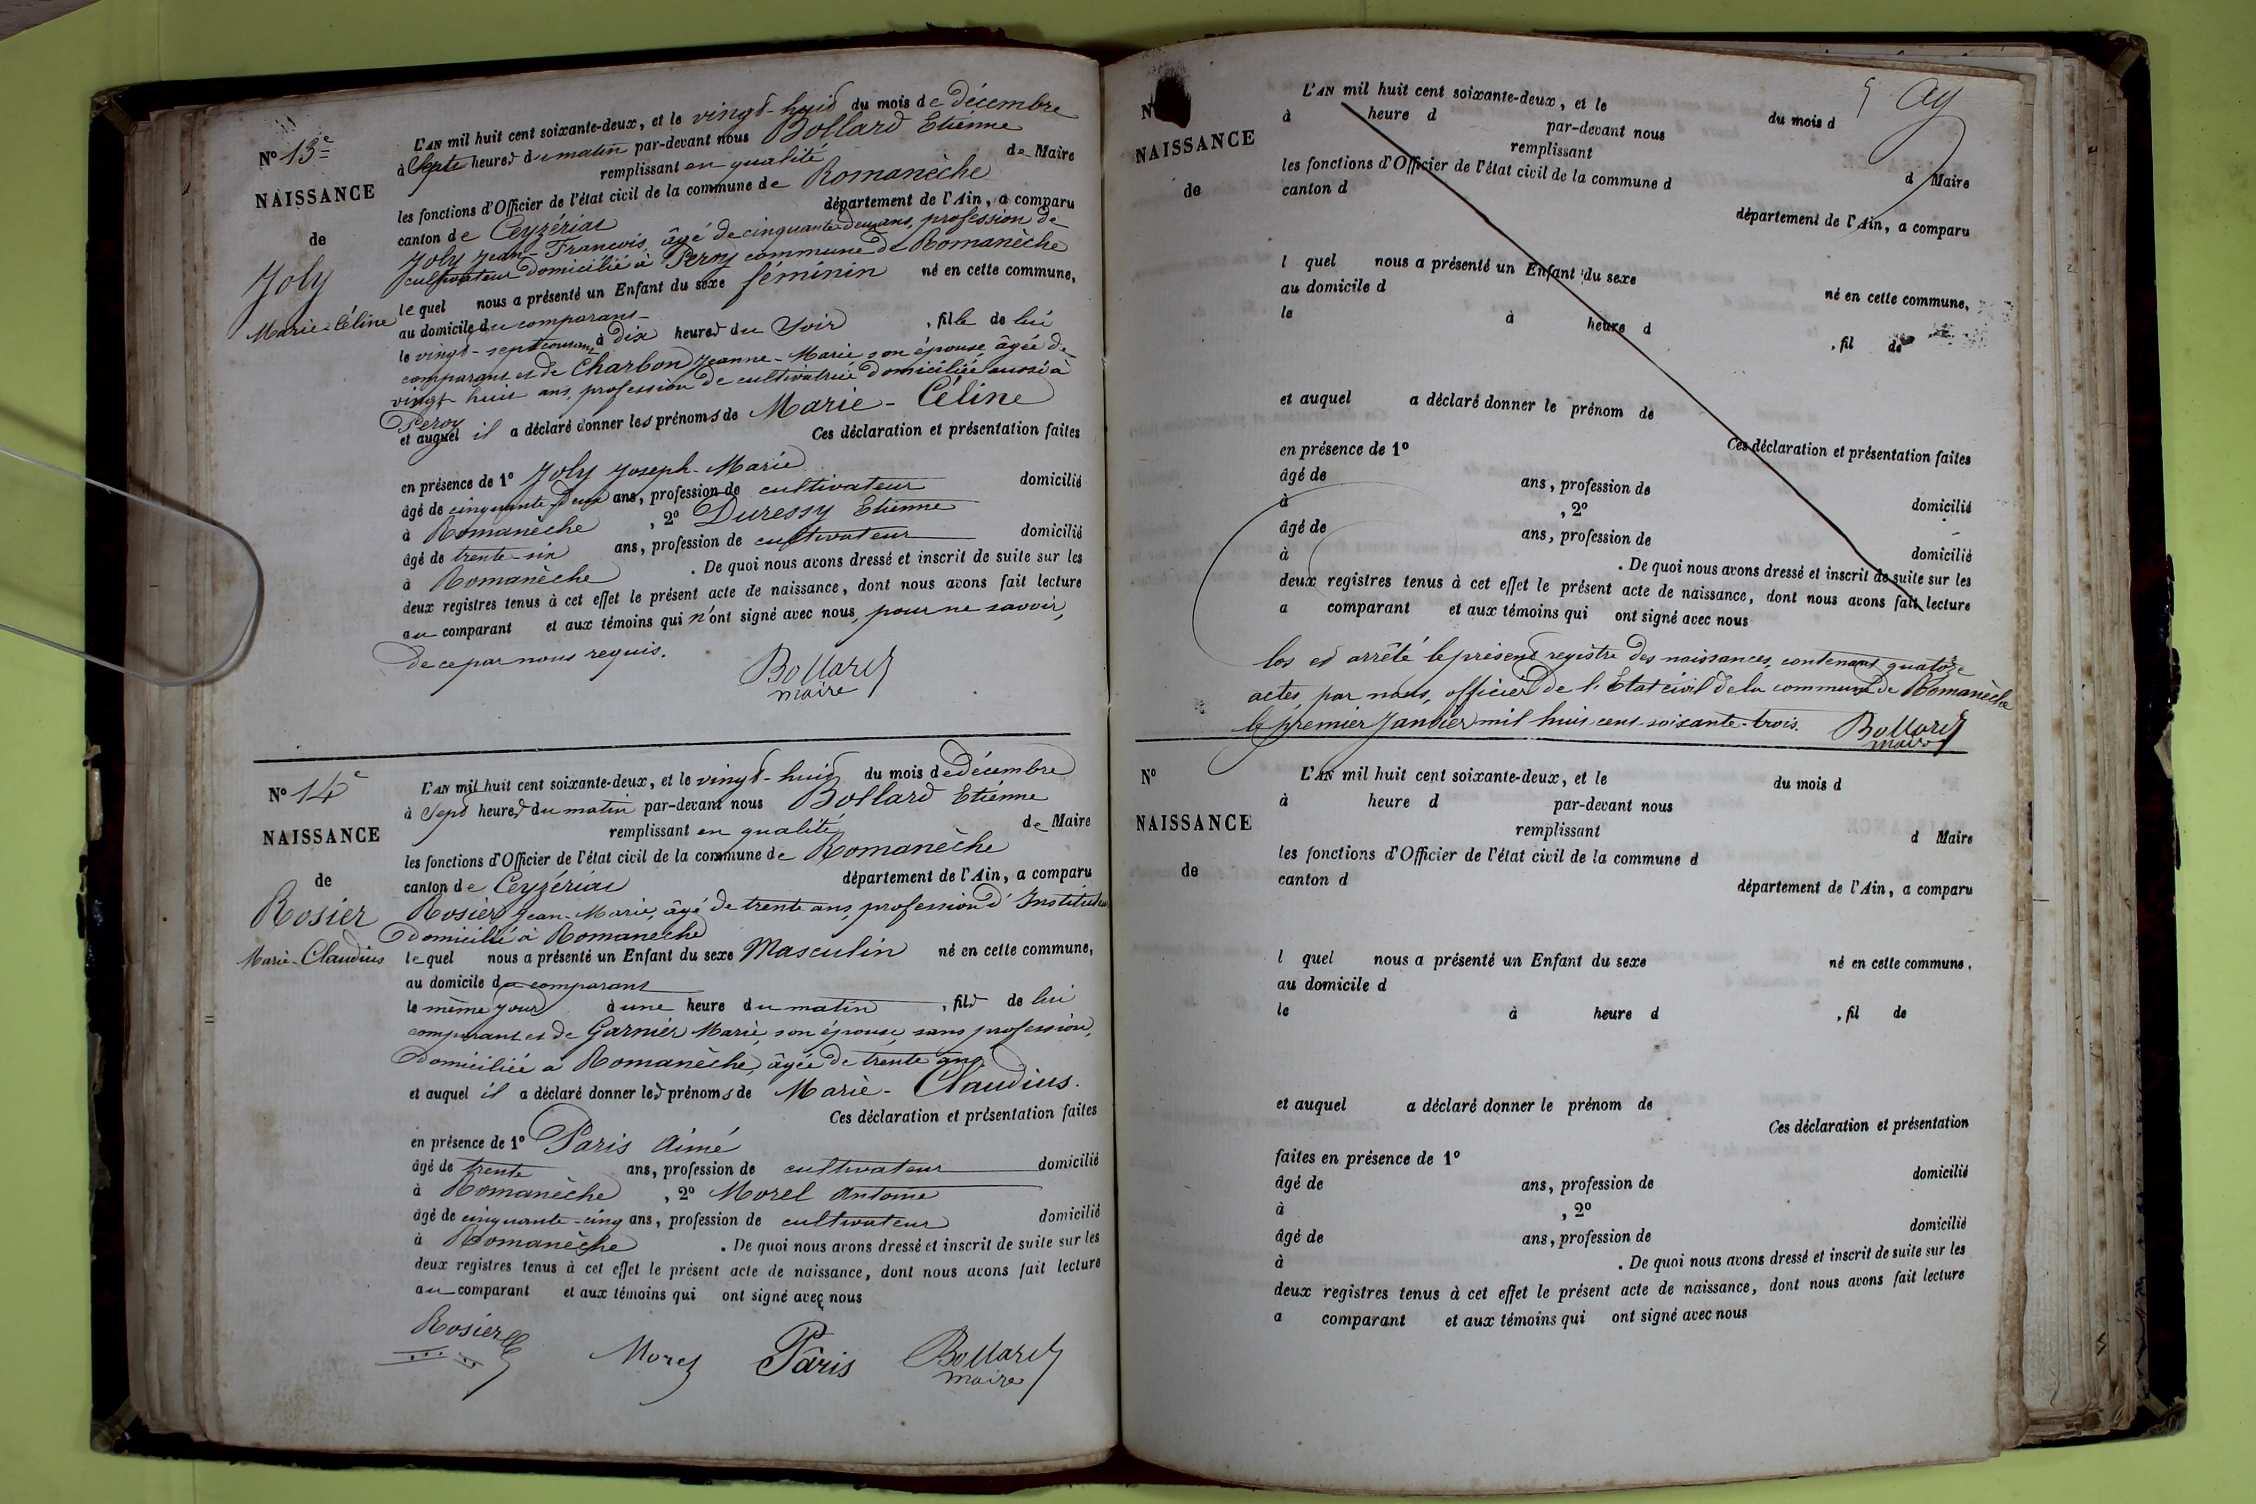 N° 13e
NAISSANCE
de
Joly
Marie-Céline
L'AN mil huit cent soixante-deux, et le vingt-huit du mois de décembre
à Septe heures du matin par-devant nous Bollard Etienne
remplissant en qualité de Maire
les fonctions d'Officier de l'état civil de la commune de Romanèche
canton de Ceyzériat département de l'Ain, a comparu
Joly Jean-François, âgé de cinquante deux ans, profession de
cultivateur domicilié à Peroy commune de Romanèche
lequel nous a présenté un Enfant du sexe féminin né en cette commune,
au domicile du comparant
le vingt-sept courant à dix heures du Soir, fille de lui
comparant et de Charbon Jeanne-Marie son épouse âgée de
vingt huit ans, profession de cultivatrice domiciliée aussi à
Peroy
et auquel il a déclaré donner les prénoms de Marie-Céline
Ces déclaration et présentation faites
en présence de 1° Joly Joseph-Marie
âgé de cinquante deux ans, profession de cultivateur domicilié
à Romanèche, 2° Duressy Etienne
âgé de trente-six ans, profession de cultivateur domicilié
à Romanèche. De quoi nous avons dressé et inscrit de suite sur les
deux registres tenus à cet effet le présent acte de naissance, dont nous avons fait lecture
au comparant et aux témoins qui n'ont signé avec nous, pour ne savoir,
de ce par nous requis.
Bollard
maire
N° 14e
NAISSANCE
de
Rosier
Marie-Claudius
L'AN mil huit cent soixante-deux, et le vingt-huit du mois de décembre
à Sept heures du matin par-devant nous Bollard Etienne
remplissant en qualité de Maire
les fonctions d'Officier de l'état civil de la commune de Romanèche
canton de Ceyzériat département de l'Ain, a comparu
Rosier Jean-Marie, âgé de trente ans, profession d'Instituteur
domicilié à Romaneche
lequel nous a présenté un Enfant du sexe Masculin né en cette commune,
au domicile du comparant
le même jour à une heure du matin, fils de lui
comparant et de Garnier Marie, son épouse, sans profession,
domiciliée a Romanèche, âgée de trente ans
et auquel il a déclaré donner les prénoms de Marie-Claudius.
Ces déclaration et présentation faites
en présence de 1° Paris Aimé
âgé de trente ans, profession de cultivateur domicilié
à Romanèche, 2° Morel Antoine
âgé de cinquante-cinq ans, profession de cultivateur domicilié
à Romanèche. De quoi nous avons dressé et inscrit de suite sur les
deux registres tenus à cet effet le présent acte de naissance, dont nous avons fait lecture
au comparant et aux témoins qui ont signé avec nous
Rosier Morel Pâris Bollard
maire
N
NAISSANCE
de
L'AN mil huit cent soixante-deux, et le du mois d
à heure d par-devant nous
remplissant d Maire
les fonctions d'Officier de l'état civil de la commune d
canton d département de l'Ain, a comparu
l quel nous a présenté un Enfant du sexe né en cette commune,
au domicile d
le à heure d , fil de
et auquel a déclaré donner le prénom de
Ces déclaration et présentation faites
en présence de 1°
âgé de ans, profession de domicilié
à , 2°
âgé de ans, profession de domicilié
à . De quoi nous avons dressé et inscrit de suite sur les
deux registres tenus à cet effet le présent acte de naissance, dont nous avons fait lecture
a comparant et aux témoins qui ont signé avec nous
Clos et arrêté le présent registre des naissances, contenant quatorze
actes, par nous, officier de l'Etat civil de la commune de Romanèche
le premier Janvier mil huit cent-soixante-trois. Bollard
maire
N°
NAISSANCE
de
L'AN mil huit cent soixante-deux, et le du mois d
à heure d par-devant nous
remplissant d Maire
les fonctions d'Officier de l'état civil de la commune d
canton d département de l'Ain, a comparu
l quel nous a présenté un Enfant du sexe né en cette commune,
au domicile d
le à heure d , fil de
et auquel a déclaré donner le prénom de
Ces déclaration et présentation
faites en présence de 1°
âgé de ans, profession de domicilié
à , 2°
âgé de ans, profession de domicilié
à . De quoi nous avons dressé et inscrit de suite sur les
deux registres tenus à cet effet le présent acte de naissance, dont nous avons fait lecture
a comparant et aux témoins qui ont signé avec nous